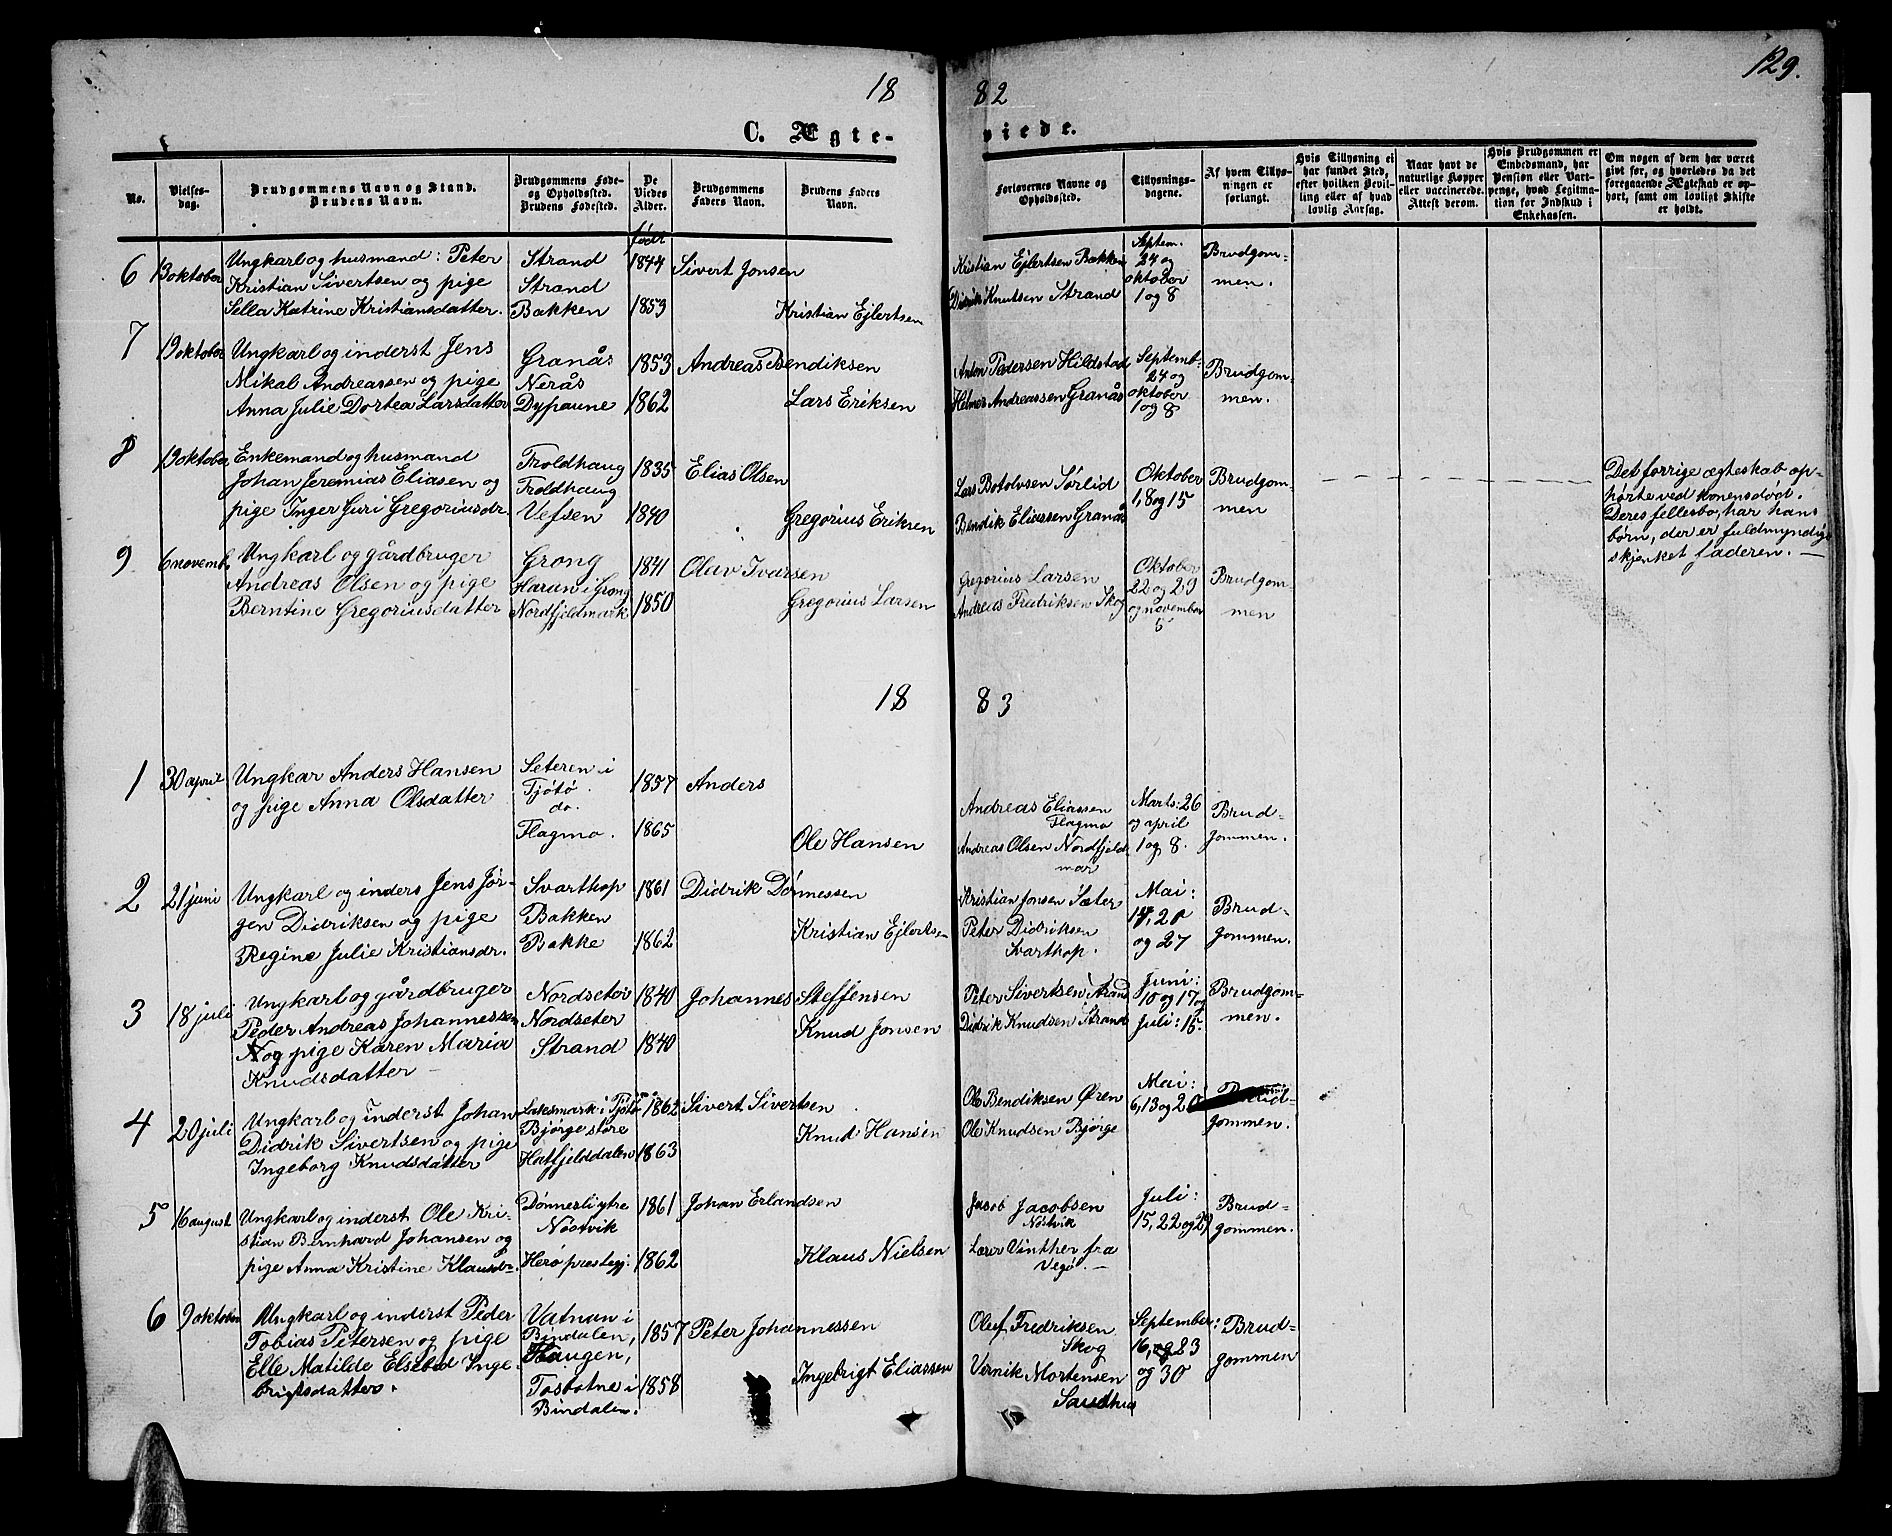 129.
18 82
C. Ægte- viede.
No.
Vielses-dag.
Brudgommens Navn og Stand.
Brudens Navn.
Brudgommens Føde- og Opholdssted.
Brudens Fødested.
De Viedes Alder.
Brudgommens Faders Navn.
Brudens Faders Navn.
Forlovernes Navne og Opholdssted.
Tillysnings-dagene.
Af hvem Tillysningen er forlangt.
Hvis Tillysning ei har fundet Sted, efter hvilken Bevilling eller af hvad lovlig Aarsag.
Naar havt de naturlige Kopper eller vaccinerede. Attest derom.
Hvis Brudgommen er Embedsmand, har Pension eller Vartpenge, hvad Legitimation for Indskud i Enkekassen.
Om nogen af dem har været givt før, og hvorledes da det foregaaende Ægteskab er ophørt, samt om lovligt Skifte er holdt.
født
6 13 oktober Ungkarl og husmand: Peter Strand 1844 Sivert Jonsen Kristian Ejlertsen Bakken Septem. 24 og Brudgom-
Kristian Sivertsen og pige Strand oktober men.
Sella Katrine Kristiansdatter. Bakken 1853 Kristian Ejlertsen Didrik Knutsen Strand 1 og 8
7 19 oktober Ungkarl og inderst Jens Granås 1853 Andreas Bendiksen Anton Pedersen Hildstad Septemb. 24 og Brudgom-
Mikal Andreassen og pige Nerås
Anna Julie Dortea Larsdatter Dypaune 1862 Lars Eriksen Helmer Andreassen Granås oktober 1 og 8 men.
8 19 oktober Enkemand og husmand Troldhaug 1835 Elias Olsen Lars Botolvsen Sørlid Oktober Brudgom- Det forrige ægteskab op-
Johan Jeremias Eliasen og Troldhaug 1, 8 og 15 men hørte ved konens død.
pige Inger Guri Gregoriusdr. Vefsen 1840 Gregorius Eriksen Bendik Eliassen Granås Deres fellesbo, har hans
børn, der er fuldmyndige
skjenket faderen. —
9 6 novemb. Ungkarl og gårdbruger Grong 1841 Olav Ivarsen Gregorius Larsen Oktober Brudgom-
Andreas Olsen og pige Haran i Grong 22 og 29
Berntine Gregoriusdatter Nordfjeldmark 1850 Gregorius Larsen Andreas Fredriksen Skog og november 5 men
18 83
1 30 april Ungkar Anders Hansen Seteren i Tjøtø. 1857 Anders Andreas Eliassen Flagmo Marts: 26 Brud-
og pige Anna Olsdatter do. og april gommen.
Flagmo. 1865 Ole Hansen Andreas Olsen Nordfjeld- mar 1 og 8.
2 21 juni Ungkarl og inders Jens Jør- Svarthop 1861 Didrik Dønnessen Kristian Jonsen Sæter Mai: Brud-
gen Didriksen og pige Bakken Peter Didriksen 14, 20 gommen.
Regine Julie Kristiansdr. Bakke 1862 Kristian Ejlertsen Svarthop. og 27
3 18 juli Ungkarl og gårdbruger Nordseter 1840 Johannes Steffensen Peter Sivertsen Strand Juni: 10 og 17 og Brudgom-
Peder Andreas Johannessen Nordseter Knud Jonsen Didrik Knudsen Strand Juli: 15. men.
og pige Karen Maria Strand 1840
Knudsdatter —
4 20 juli Ungkarl og inderst Johan Laksmark i Tjøtø 1862 Sivert Sivertsen Ole Bendiksen Øren Mai: 6, 13 og 20 Brud-
Didrik Sivertsen og pige Bjørge støre Knud Hansen Ole Knudsen Bjørge gommen.
Ingeborg Knudsdatter Hatfjelddalen 1863
5 16 august Ungkarl og inderst Ole Kri- Dønnerligtre 1861 Johan Erlandsen Jacob Jacobsen Nøtvik Juli: Brud-
stian Bernhard Johansen og Nøtvik 15, 22 og 29 gommen.
pige Anna Kristine Klausdr. Herø prestegj: 1862 Klaus Nielsen Lærer Vinther fra Vegø. —
6 9 oktober Ungkarl og inderst Peder Vatnan i Bindalen, 1857 Peter Johannessen Oluf Fredriksen Skog September: Brud-
Tobias Petersen og pige Haugen, 16, og 23 gommen
Elle Matilde Elsebed Inge- Tosbotne i 1858 Ingebrigt Eliassen Vernik Mortensen og 30
brigtsdatter. Bindalen. Sandhus